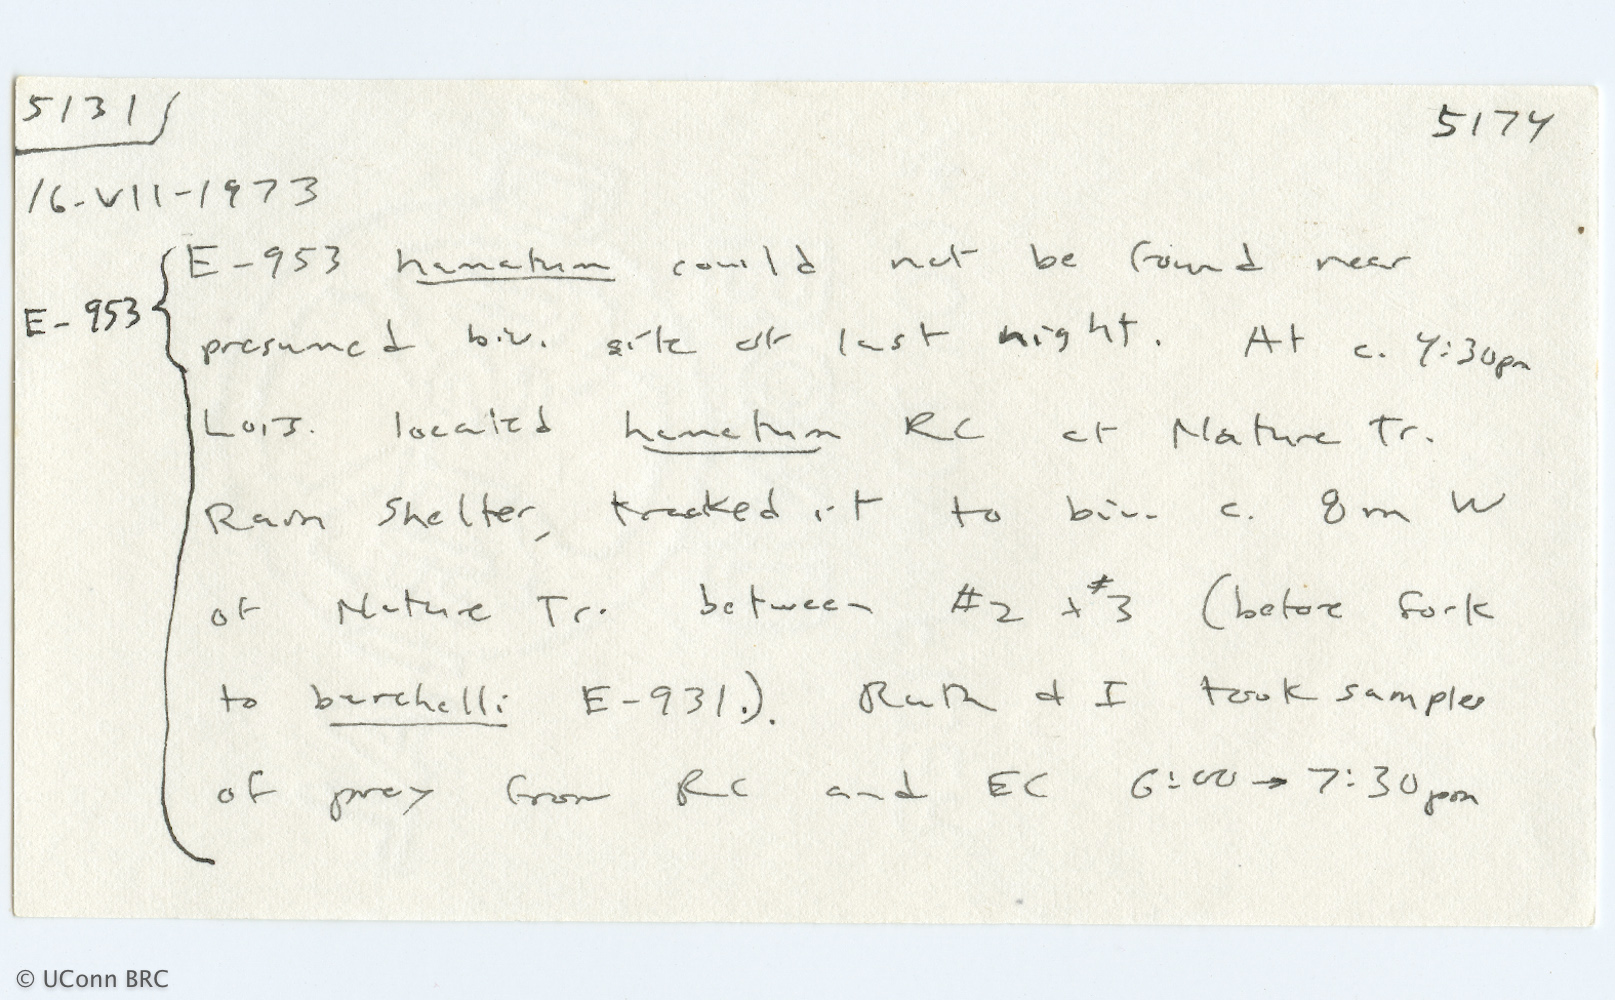 5131
5174
16-VII-1973
E-953 hamatum could not be found near
E-953
presumed biv. site of last night. At c. 4:30pm
Lois. located hamatum RC at Nature Tr.
Rain Shelter, tracked it to biv. c. 8m W
of Nature Tr. between #2 + #3 (before fork
to burchelli E-931.). Ruth & I took samples
of prey from RC and EC 6:00 → 7:30pm
© UConn BRC